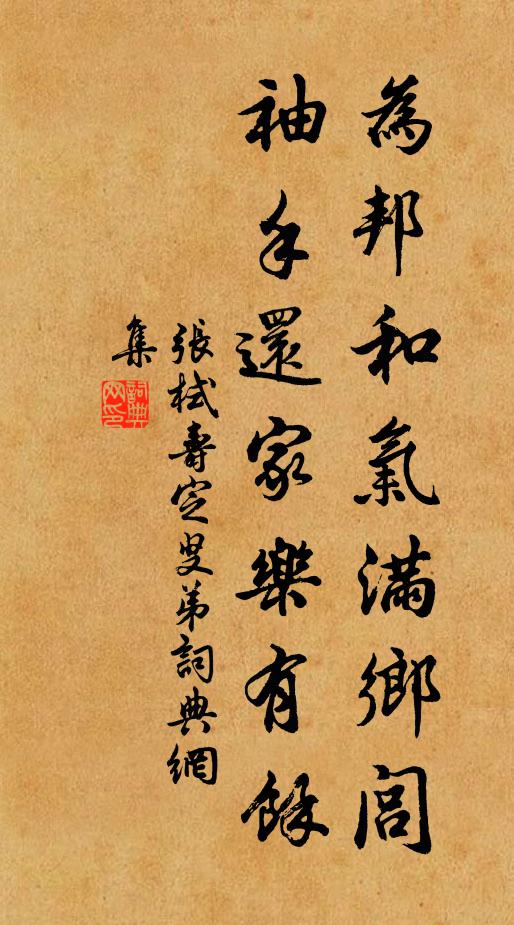 為邦和氣滿鄉閭
袖手還家樂有餘
張栻壽定叟弟詞典網
集
詞典
网印